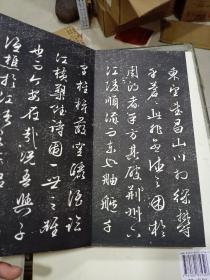 東望武昌山川相繆鬱
乎蒼此非孟德之困於
周郎者乎方其破荊州下
江陵順流而東也舳艫千
里旌旗蔽空釃酒臨
江橫槊賦詩固一世之雄
也而今安在哉況吾與子
漁樵於江渚